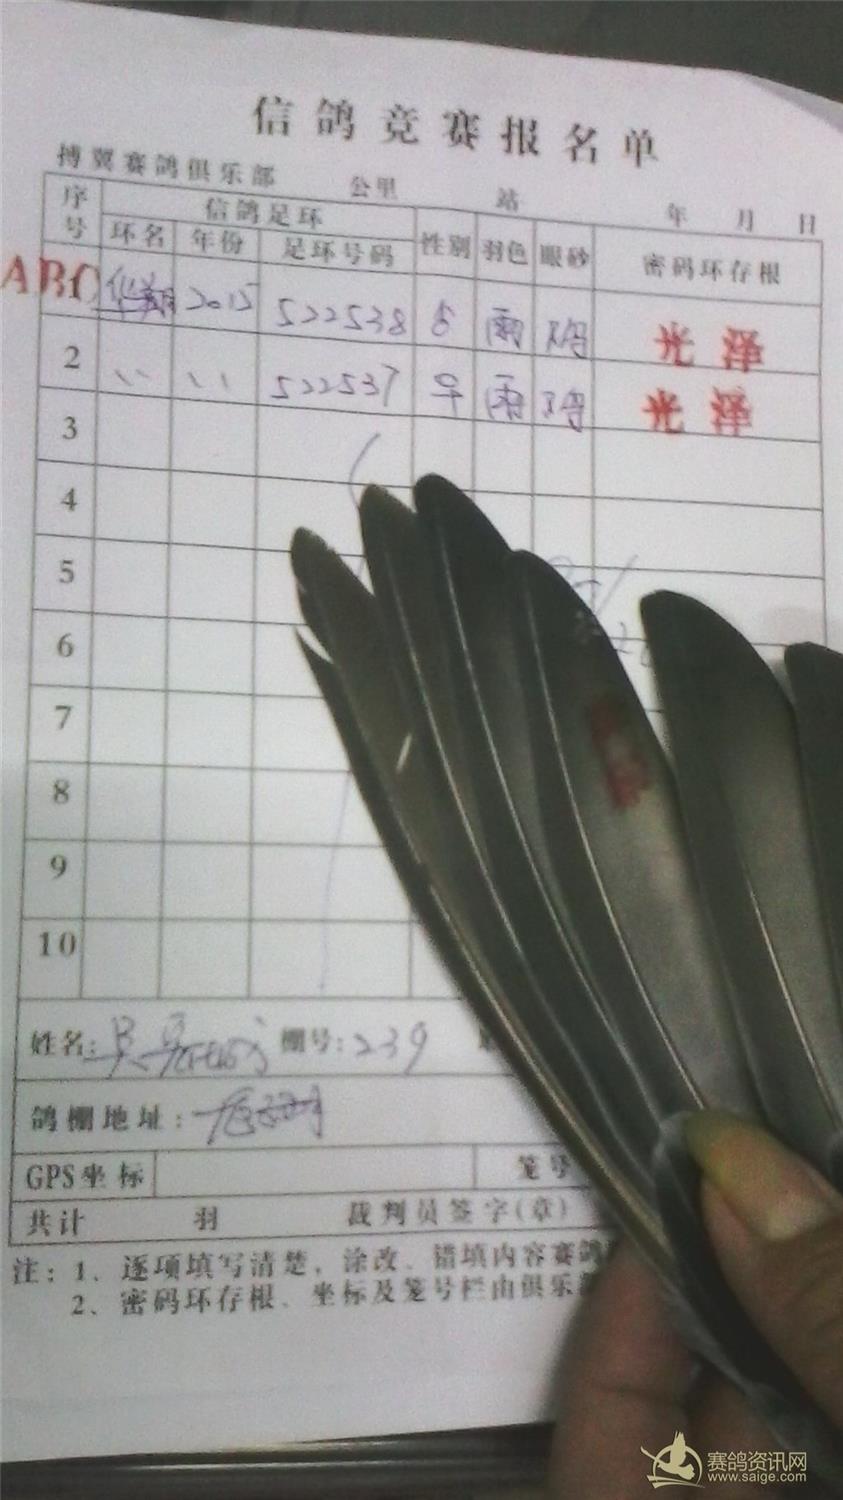 信鸽竞赛报名单
搏翼赛鸽俱乐部 公里 站 年 月 日
序号 信鸽足环 性别 羽色 眼砂 密码环存根
环名 年份 足环号码
ABC 华翔 2015 522538 雨 光泽
2 〃 〃 522537 雨 光泽
3
4
5
6
7
8
9
10
姓名: 棚号: 239
鸽棚地址:
GPS坐标 笼号
共计 羽 裁判员签字(章)
注: 1、逐项填写清楚, 涂改、错填内容赛鸽
2、密码环存根、坐标及笼号栏由俱乐
赛鸽资讯网
www.saige.com